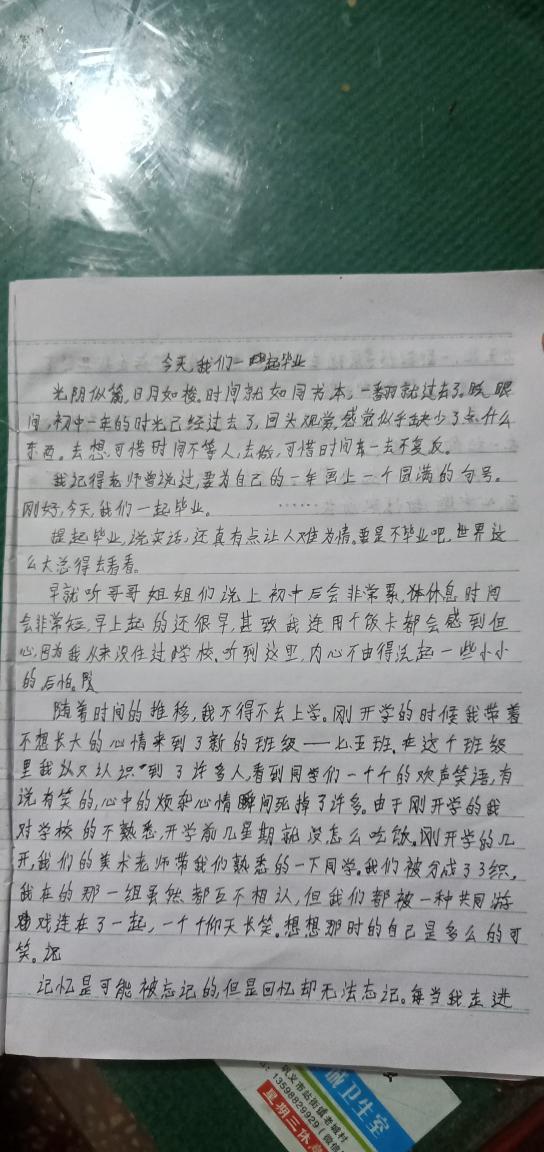 今天,我们一起毕业
光阴似箭,日月如梭。时间就如同书本,一翻就过去了。眨眼
间,初中一年的时光已经过去了,回头观赏,感觉似乎缺少了点什么
东西。去想,可惜时间不等人,去做,可惜时间去一去不复反。
我记得老师曾说过,要为自己的一年画上一个圆满的句号。
刚好,今天,我们一起毕业。 ……
提起毕业,说实话,还真有点让人难为情。要是不毕业吧,世界这
么大总得去看看。
早就听哥哥姐姐们说上初中后会非常累,休息时间
会非常短,早上起的还很早,甚致我连用个饭卡都会感到但
心,因为我从来没住过学校。听到这里,内心不由得泛起一些小小
的后怕。
随着时间的推移,我不得不去上学。刚开学的时候我带着
不想长大的心情来到了新的班级——七五班。在这个班级
里我又认识到了许多人,看到同学们一个个的欢声笑语,有
说有笑的,心中的烦杂心情瞬间死掉了许多。由于刚开学的我
对学校的不熟悉,开学前几星期就没怎么吃饭。刚开学的几
天,我们的美术老师带我们熟悉的一下同学。我们被分成了3组,
我在的那一组虽然都互不相认,但我们都被一种共同游
戏连在了一起,一个个仰天长笑。想想那时的自己是多么的可
笑。
记忆是可能被忘记的,但是回忆却无法忘记。每当我走进
城卫生室
巩义市站街镇老城村
13598829929(微信
星期三休